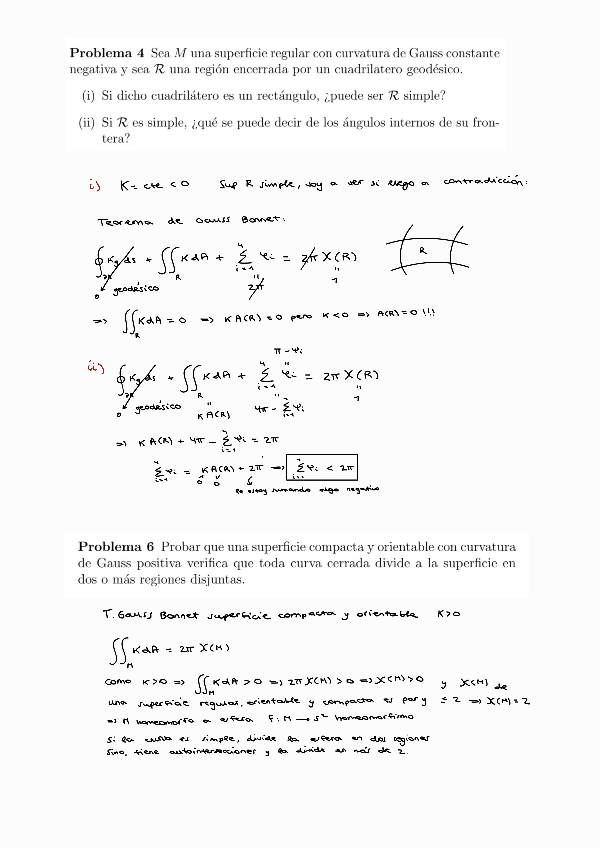 Problema 4 Sea M una superficie regular con curvatura de Gauss constante
negativa y sea R una región encerrada por un cuadrilatero geodésico.
(i) Si dicho cuadrilátero es un rectángulo, ¿puede ser R simple?
(ii) Si R es simple, ¿qué se puede decir de los ángulos internos de su fron-
tera?
i) K = cte < 0 Sup R simple, voy a ver si llego a contradicción:
Teorema de Gauss Bonnet:
∮_∂R Kg ds + ∬_R K dA + Σ_{i=1}^4 φi = 2π X(R)
0 geodésico 2π 1
R
=> ∬_R K dA = 0 => K A(R) = 0 pero K < 0 => A(R) = 0 !!!
π - φi
ii) ∮_∂R Kg ds + ∬_R K dA + Σ_{i=1}^4 φi = 2π X(R)
0 geodésico K A(R) 4π - Σ_{i=1}^4 φi 1
=> K A(R) + 4π - Σ_{i=1}^4 φi = 2π
Σ_{i=1}^4 φi = K A(R) + 2π => Σ_{i=1}^4 φi < 2π
0 0
le estoy sumando algo negativo
Problema 6 Probar que una superficie compacta y orientable con curvatura
de Gauss positiva verifica que toda curva cerrada divide a la superficie en
dos o más regiones disjuntas.
T. Gauss Bonnet superficie compacta y orientable K>0
∬_M K dA = 2π X(M)
como K>0 => ∬_M K dA > 0 => 2π X(M) > 0 => X(M) > 0 y X(M) de
una superficie regular, orientable y compacta es par y ≤ 2 => X(M) = 2
=> M homeomorfo a esfera F: M → S² homeomorfismo
Si la curva es simple, divide la esfera en dos regiones
Sino, tiene autointersecciones y la divide en más de 2.